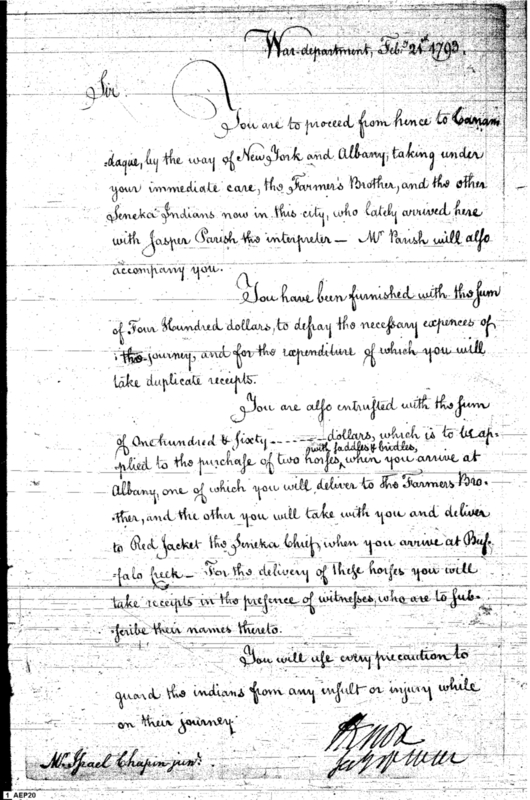 War-department, Feby. 21st 1793.
Sir
You are to proceed from hence to Canan
-daque, by the way of New York and Albany, taking under
your immediate care, the Farmer's Brother, and the other
Seneka Indians now in this city, who lately arrived here
with Jasper Parish the interpreter — Mr Parish will also
accompany you.
You have been furnished with the sum
of Four Hundred dollars, to defray the necessary expences of
the journey, and for the expenditure of which you will
take duplicate receipts.
You are also entrusted with the sum
of One hundred & sixty ------- dollars, which is to be ap-
with saddles & bridles,
plied to the purchase of two horses, when you arrive at
Albany, one of which you will deliver to the Farmers Bro-
-ther, and the other you will take with you and deliver
to Red Jacket the Seneka Chief, when you arrive at Buf-
-falo Creek — For the delivery of these horses you will
take receipts in the presence of witnesses, who are to sub-
-scribe their names thereto.
You will use every precaution to
guard the indians from any insult or injury while
on their journey.
H Knox
Secy of War
Mr. Israel Chapin junr.
1 AEP20